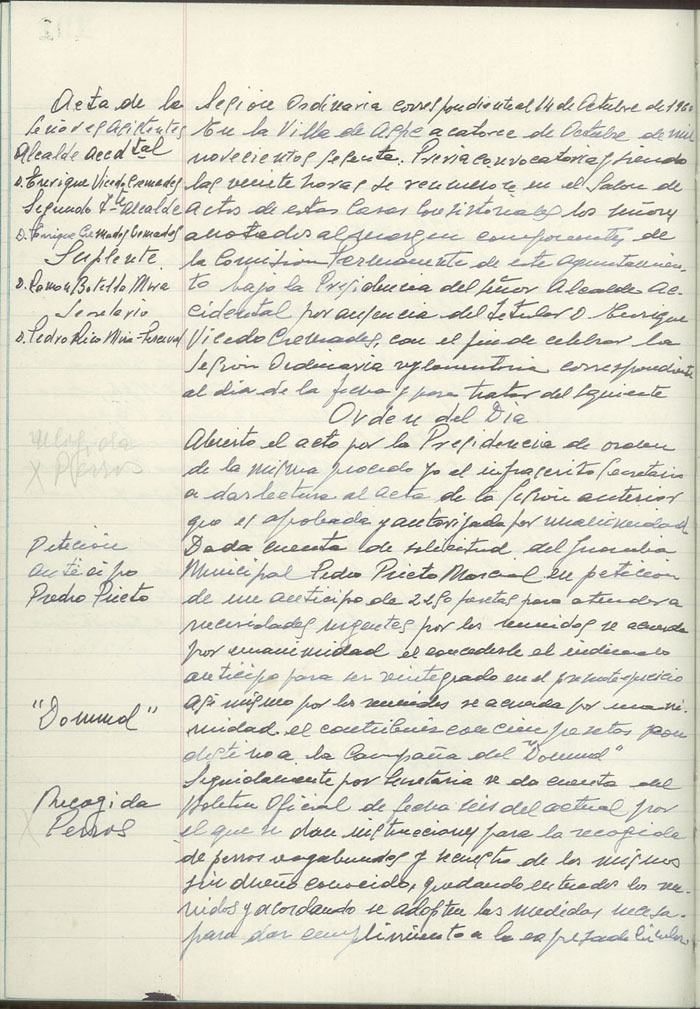 Acta de la Sesion Ordinaria correspondiente al 14 de Octubre de 1960
Señores Asistentes
Alcalde Accdtal
D. Enrique Vicedo Cremades
Segundo Tte Alcalde
D. Enrique Cremades Cremades
Suplente
D. Ramon Botella Mira
Secretario
D. Pedro Rico Mira-Perceval
En la Villa de Aspe a catorce de Octubre de mil
novecientos sesenta. Previa convocatoria y siendo
las veinte horas se reunieron en el Salon de
actos de estas Casas Consistoriales los señores
anotados al margen componentes de
la Comision Permanente de este Ayuntamien-
to bajo la Presidencia del señor Alcalde Ac-
cidental por ausencia del titular D. Enrique
Vicedo Cremades, con el fin de celebrar la
Sesion Ordinaria reglamentaria correspondiente
al dia de la fecha y para tratar del siguiente
Orden del Dia
recogida
X Perros
Abierto el acto por la Presidencia de orden
de la misma procedo yo el infrascrito Secretario
a dar lectura al acta de la sesion anterior
que es aprobada y autorizada por unanimidad
Peticion
anticipo
Pedro Prieto
Dada cuenta de solicitud del Guardia
Municipal Pedro Prieto en peticion
de un anticipo de 2250 pesetas para atender a
necesidades urgentes por los reunidos se acuerda
por unanimidad el concederle el indicado
anticipo para ser reintegrado en el presente ejercicio
"Domund"
Asi mismo por los reunidos se acuerda por unani-
midad el contribuir con cien pesetas con
destino a la Campaña del "Domund"
Recogida
X Perros
Seguidamente por Secretaria se da cuenta del
Boletin Oficial de fecha seis del actual por
el que se dan instrucciones para la recogida
de perros vagabundos y secuestro de los mismos
sin dueño conocido, quedando enterados los reu-
nidos y acordando se adopten las medidas necesa.
para dar cumplimiento a la expresada Circular